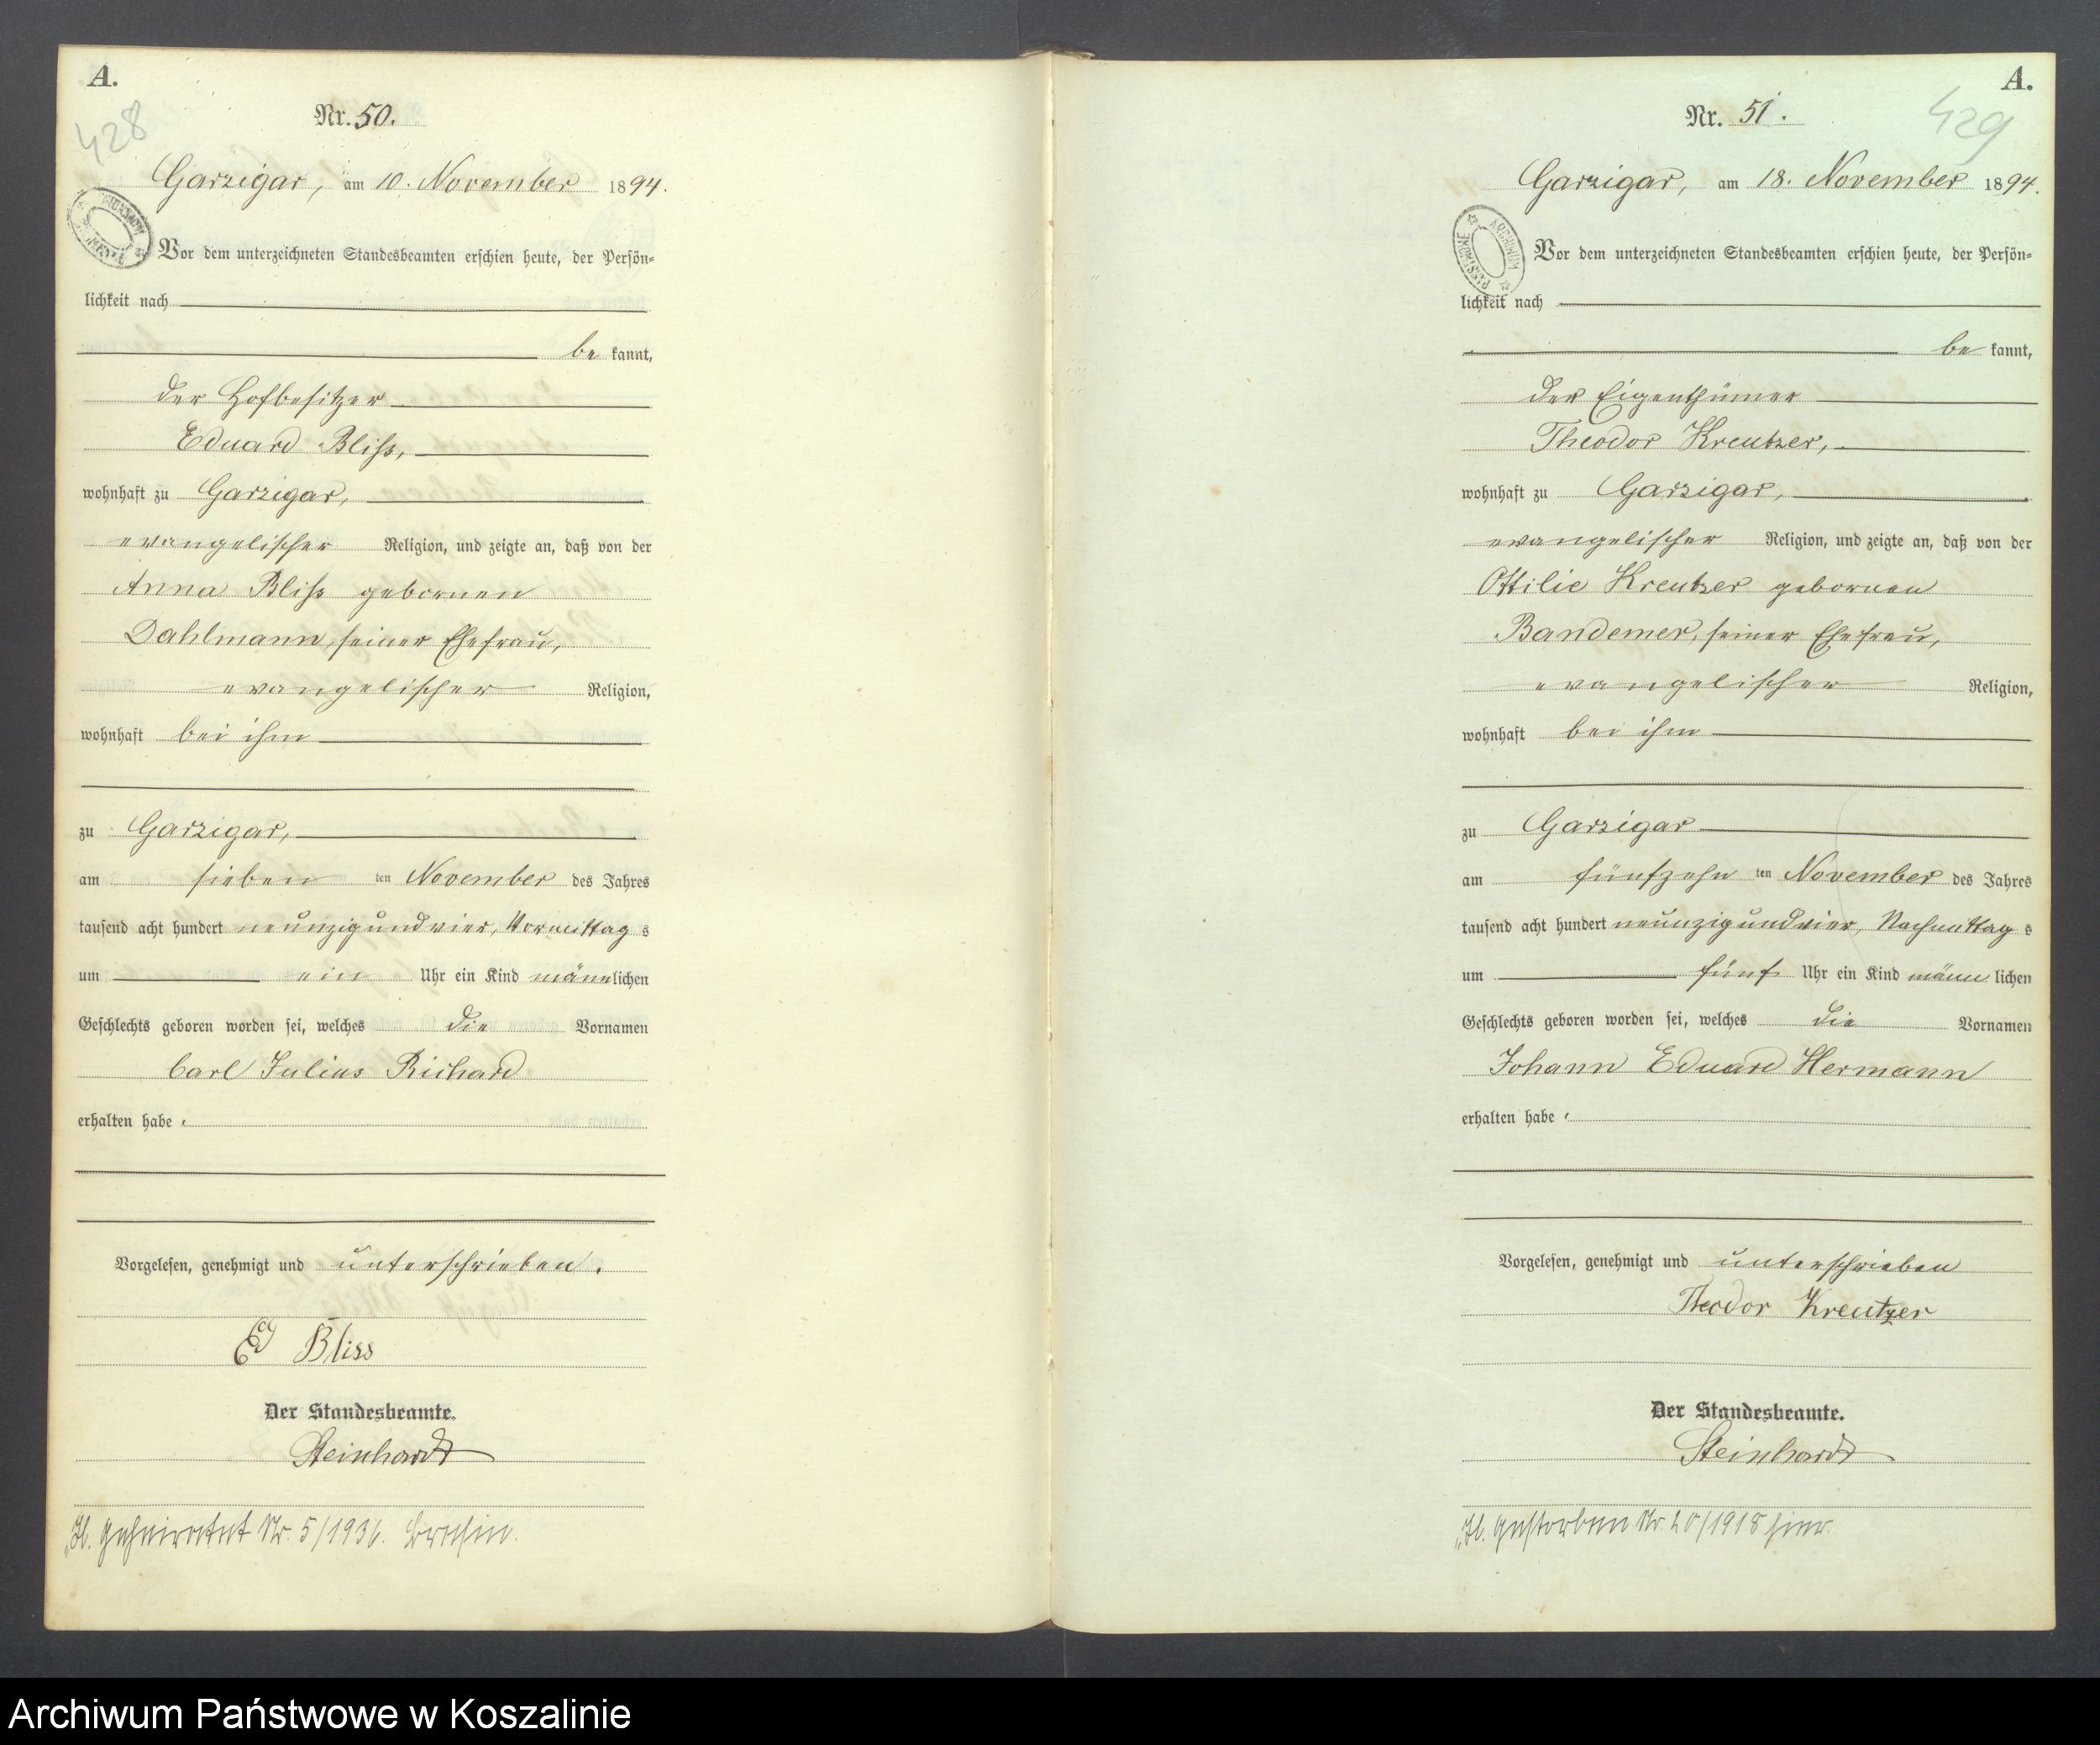 A.
428
Nr. 50.
Garzigar, am 10. November 1894.
Vor dem unterzeichneten Standesbeamten erschien heute, der Persön=
lichkeit nach
be kannt,
der Hofbesitzer
Eduard Bliss,
wohnhaft zu Garzigar,
evangelischer Religion, und zeigte an, daß von der
Anna Bliss gebornen
Dahlmann, seiner Ehefrau,
evangelischer Religion,
wohnhaft bei ihm
zu Garzigar,
am sieben ten November des Jahres
tausend acht hundert neunzigundvier, Vormittag s
um ein Uhr ein Kind männlichen
Geschlechts geboren worden sei, welches die Vornamen
Carl Julius Richard
erhalten habe.
Vorgelesen, genehmigt und unterschrieben.
Ed Bliss
Der Standesbeamte.
Steinhardt
geheiratet Nr. 5/1936.
A.
429
Nr. 51.
Garzigar, am 18. November 1894.
ARCHIWUM PAŃSTWOWE
Vor dem unterzeichneten Standesbeamten erschien heute, der Persön=
lichkeit nach
be kannt,
der Eigenthümer
Theodor Kreutzer,
wohnhaft zu Garzigar,
evangelischer Religion, und zeigte an, daß von der
Ottilie Kreutzer gebornen
Bandemer, seiner Ehefrau,
evangelischer Religion,
wohnhaft bei ihm
zu Garzigar
am fünfzehn ten November des Jahres
tausend acht hundert neunzigundvier, Nachmittag s
um fünf Uhr ein Kind männ lichen
Geschlechts geboren worden sei, welches die Vornamen
Johann Eduard Hermann
erhalten habe.
Vorgelesen, genehmigt und unterschrieben
Theodor Kreutzer
Der Standesbeamte.
Steinhardt
gestorben Nr. 20/1918 hier.
Archiwum Państwowe w Koszalinie